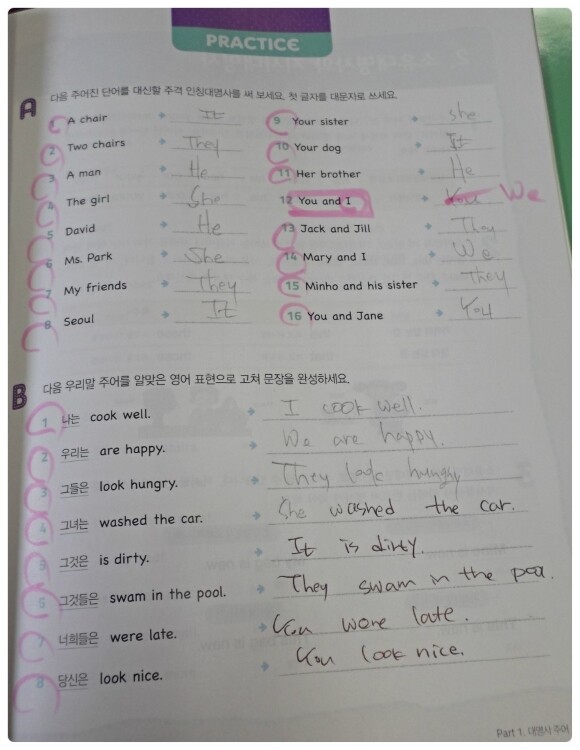 PRACTICE
A 다음 주어진 단어를 대신할 주격 인칭대명사를 써 보세요. 첫 글자를 대문자로 쓰세요.
1 A chair It
2 Two chairs They
3 A man He
4 The girl She
5 David He
6 Ms. Park She
7 My friends They
8 Seoul It
9 Your sister she
10 Your dog It
11 Her brother He
12 You and I You We
13 Jack and Jill They
14 Mary and I We
15 Minho and his sister They
16 You and Jane You
B 다음 우리말 주어를 알맞은 영어 표현으로 고쳐 문장을 완성하세요.
1 나는 cook well. I cook well.
2 우리는 are happy. We are happy.
3 그들은 look hungry. They look hungry
4 그녀는 washed the car. She washed the car.
5 그것은 is dirty. It is dirty.
6 그것들은 swam in the pool. They swam in the
7 너희들은 were late. You were late.
8 당신은 look nice. You look nice.
Part 1. 대명사 주어